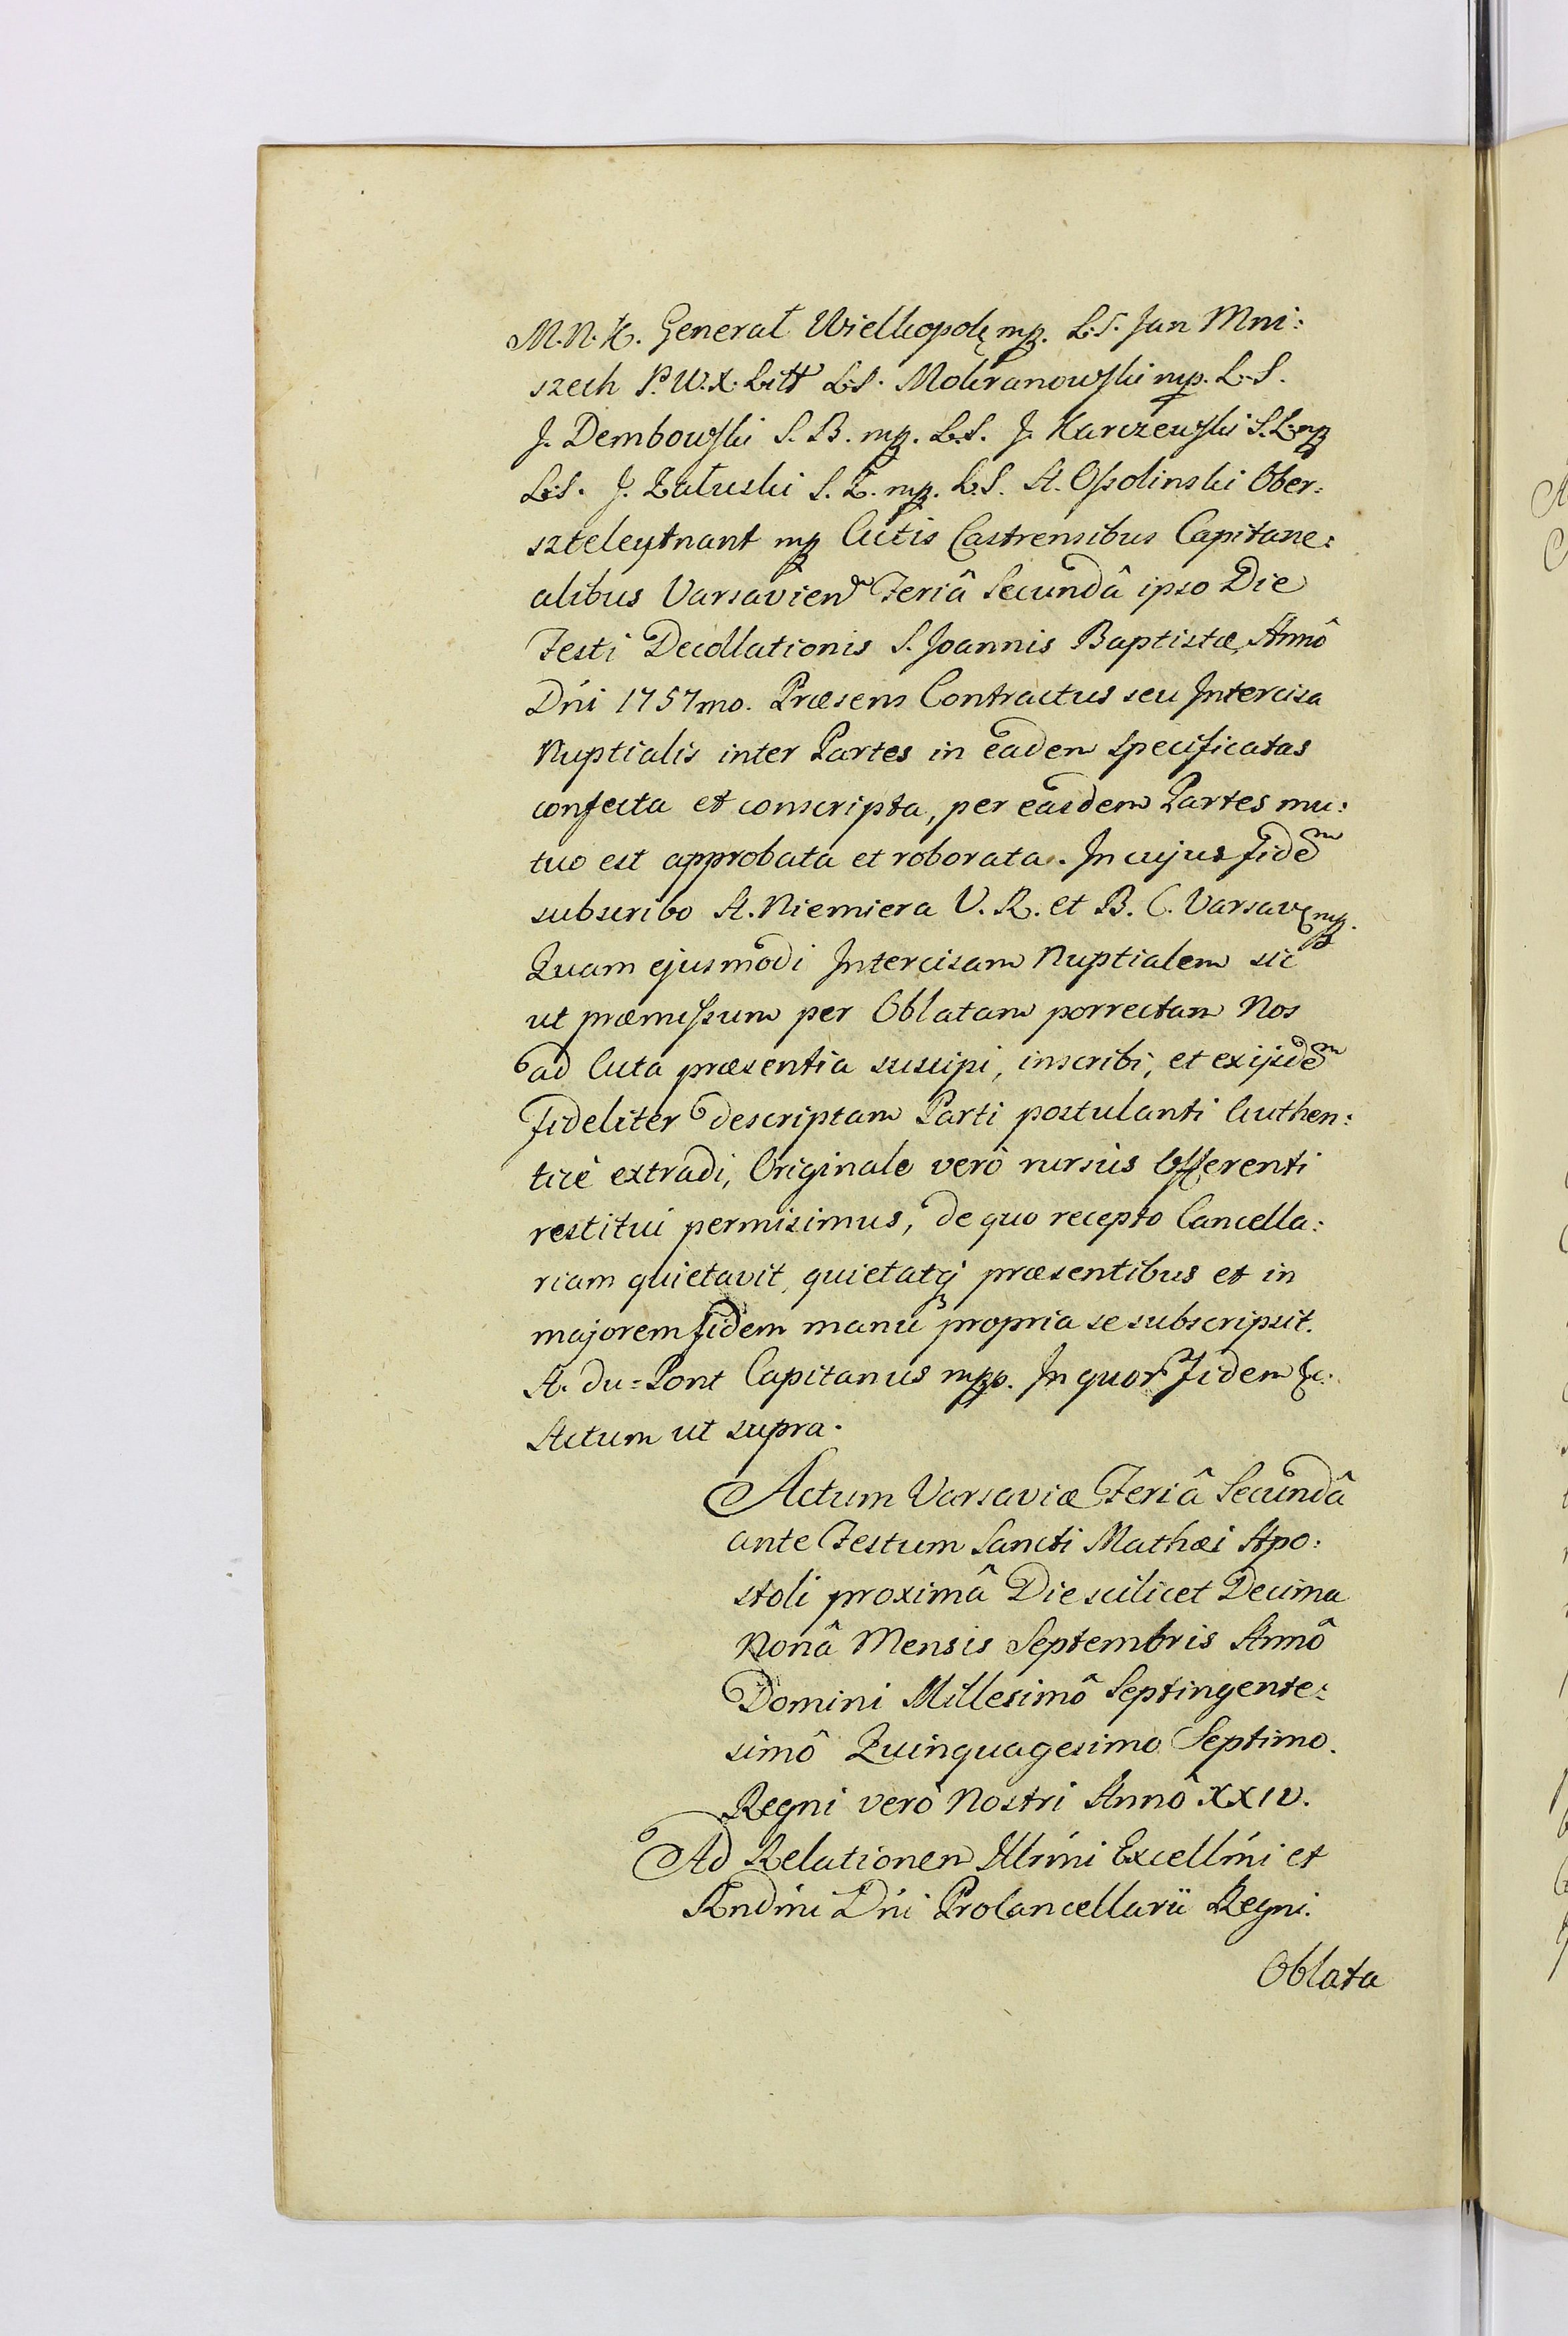 M.N.K. Generał Wielkopolę mp. L.S. Jan Mni:
szech P.W.X. Litt L.S. Mokranowski mp. L.S.
J. Dembowski S.B. mp. L.S. J. Karczewski S.L. mp
L.S. J. Załuski S.Z. mp. L.S. A. Ossolinski Ober:
szteleytnant mp Actis Castrensibus Capitane:
alibus Varsavien Feriâ Secundâ ipso Die
Festi Decollationis S. Joannis Baptistæ, Annô
Dni 1757mo. Præsens Contractus seu Intercisa
Nuptialis inter Partes in eadem specificatas
confecta et conscripta, per easdem Partes mu:
tuo est approbata et roborata. In cujus fidem
subscribo A. Niemiera V.R. et B.C. Varsav mp.
Quam ejusmodi Intercisam Nuptialem sic
ut præmissum per Oblatam porrectam Nos
ad Acta præsentia suscipi, inscribi, et exijsdem
fideliter descriptam Parti postulanti Authen:
ticè extradi, Originale verò rursùs Offerenti
restitui permisimus, de quo recepto Cancella:
riam quietavit, quietatq præsentibus et in
majorem fidem manu propria se subscripsit.
A. du=Pont Capitanus mpp. In quor Fidem &c.
Actum ut supra.
Actum Varsaviæ Feriâ Secundâ
ante Festum Sancti Mathæi Apo:
stoli proximâ Die scilicet Decima
Nonâ Mensis Septembris Annô
Domini Millesimô Septingente:
simô Quinquagesimo Septimo.
Regni verò Nostri Annô XXIV.
Ad Relationem Illrmi Excellmi et
Rndmi Dni ProCancellarii Regni.
Oblata